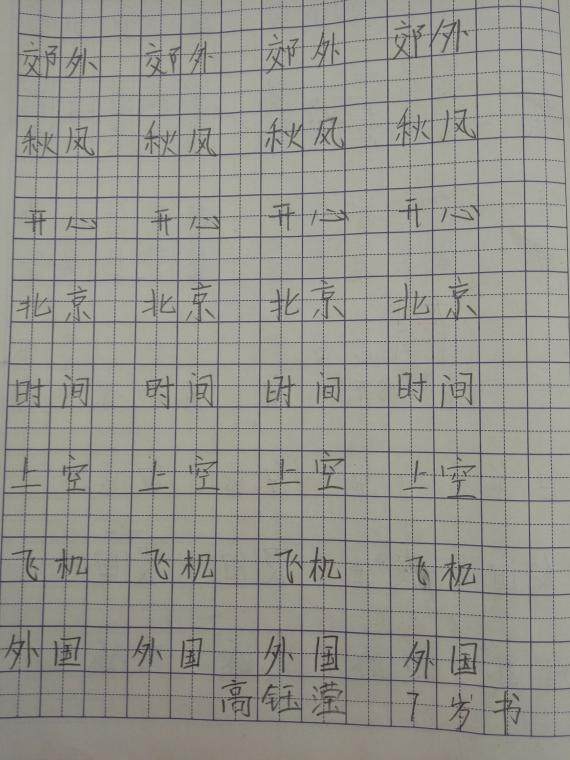 郊外 郊外 郊外 郊外
秋风 秋风 秋风 秋风
开心 开心 开心 开心
北京 北京 北京 北京
时间 时间 时间 时间
上空 上空 上空 上空
飞机 飞机 飞机 飞机
外国 外国 外国 外国
高钰滢 7岁书